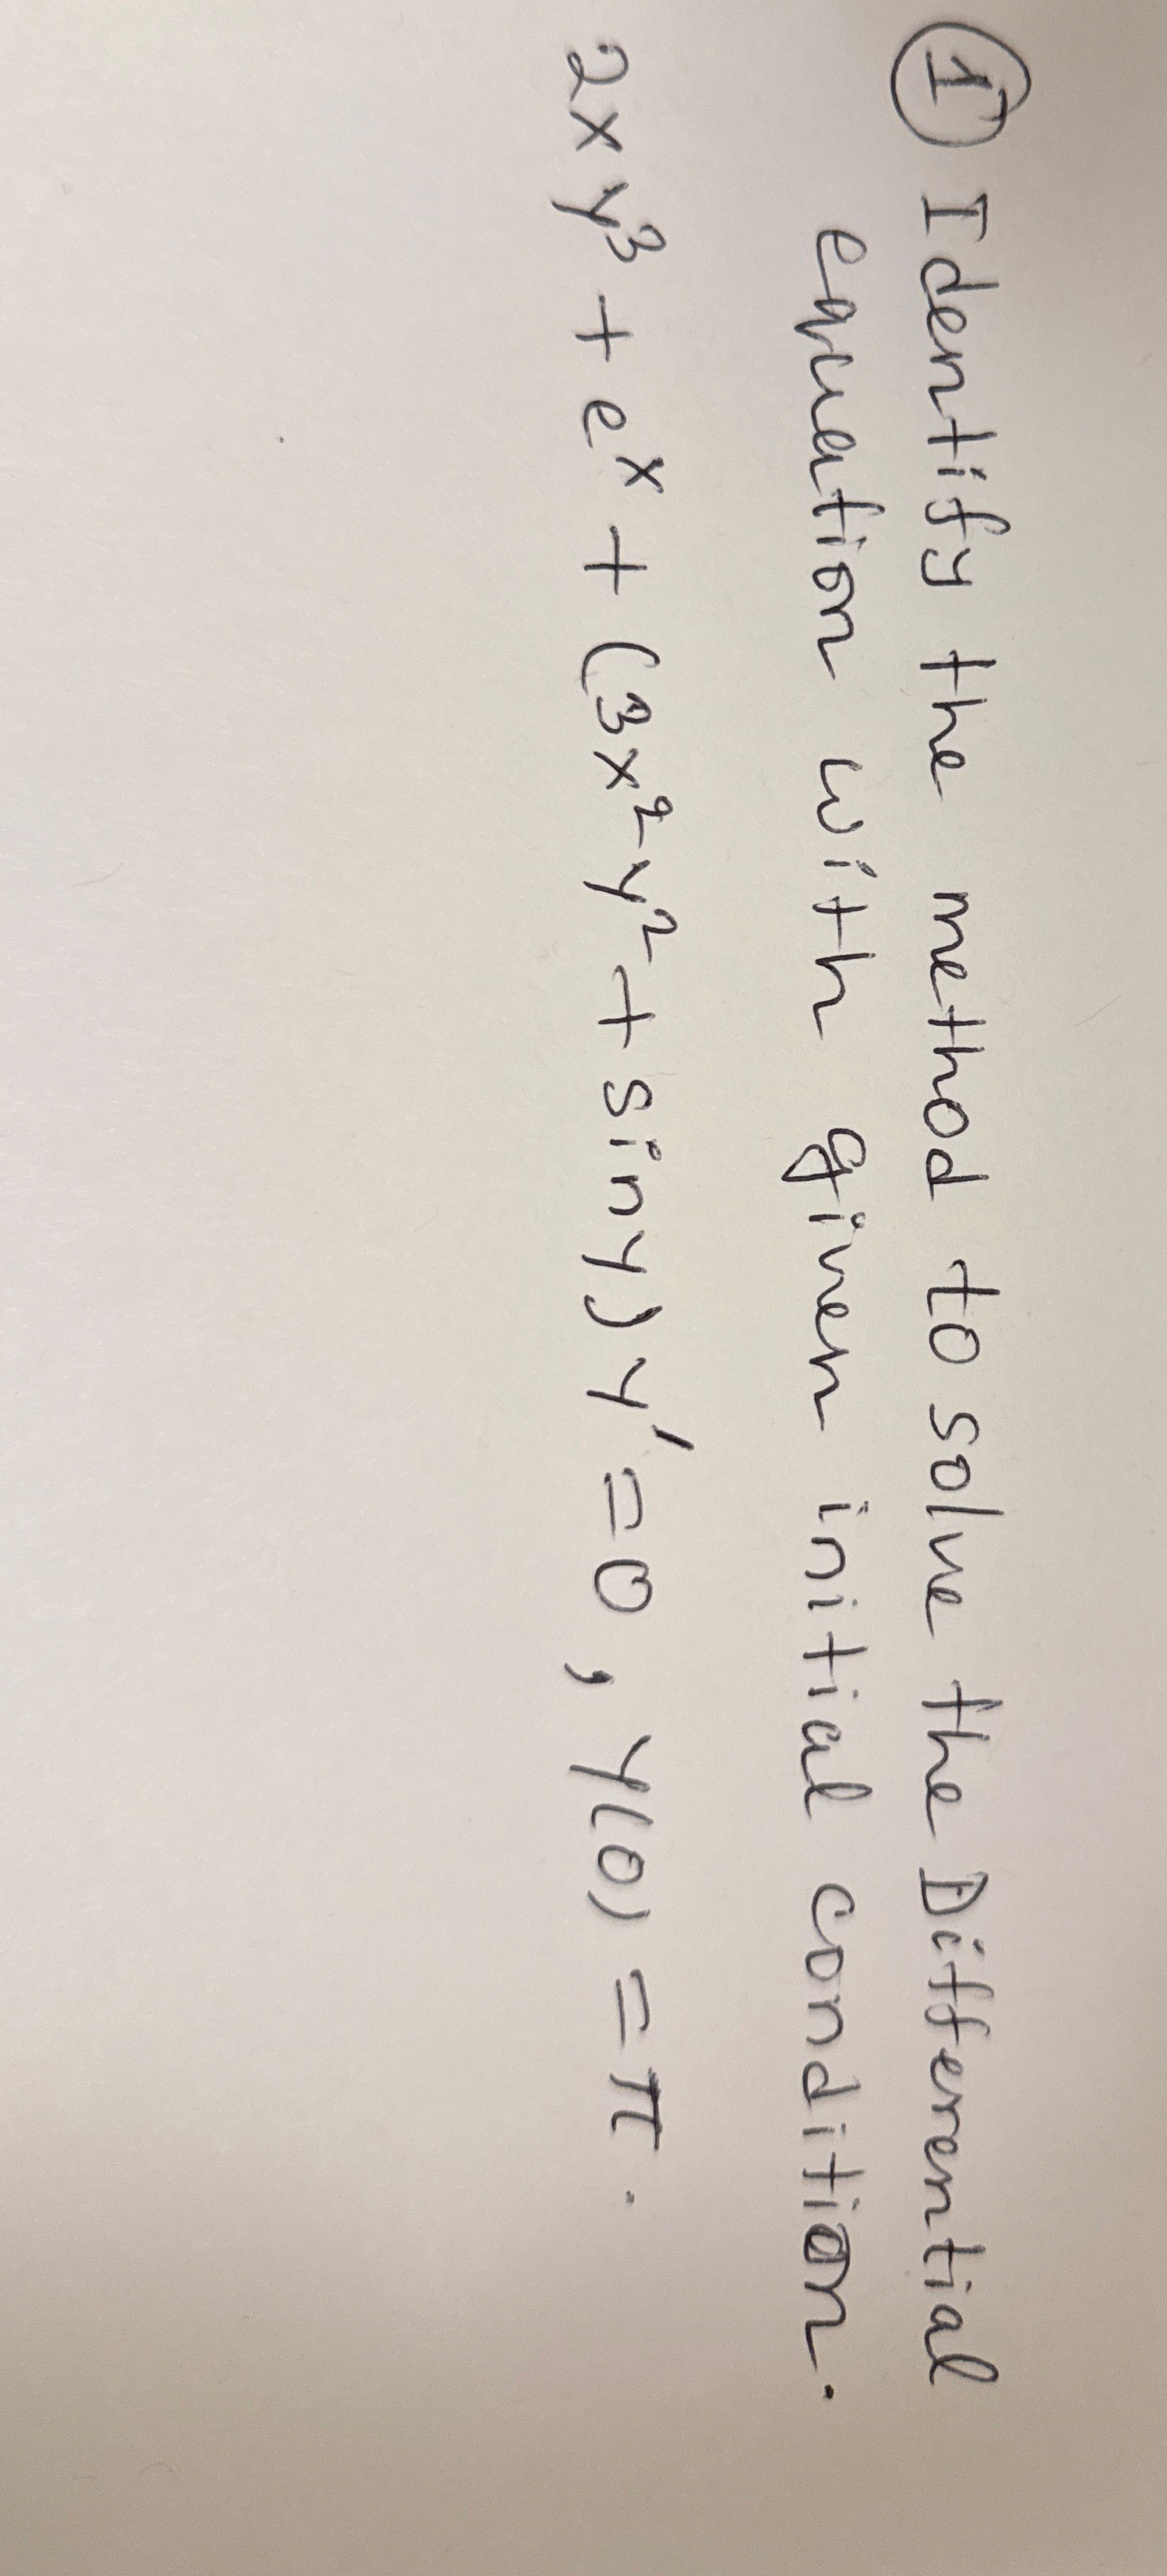 ① Identify the method to solve the Differential
equation with given initial condition.
2xy³ + eˣ + (3x²y² + siny) y' = 0, y(0) = π.